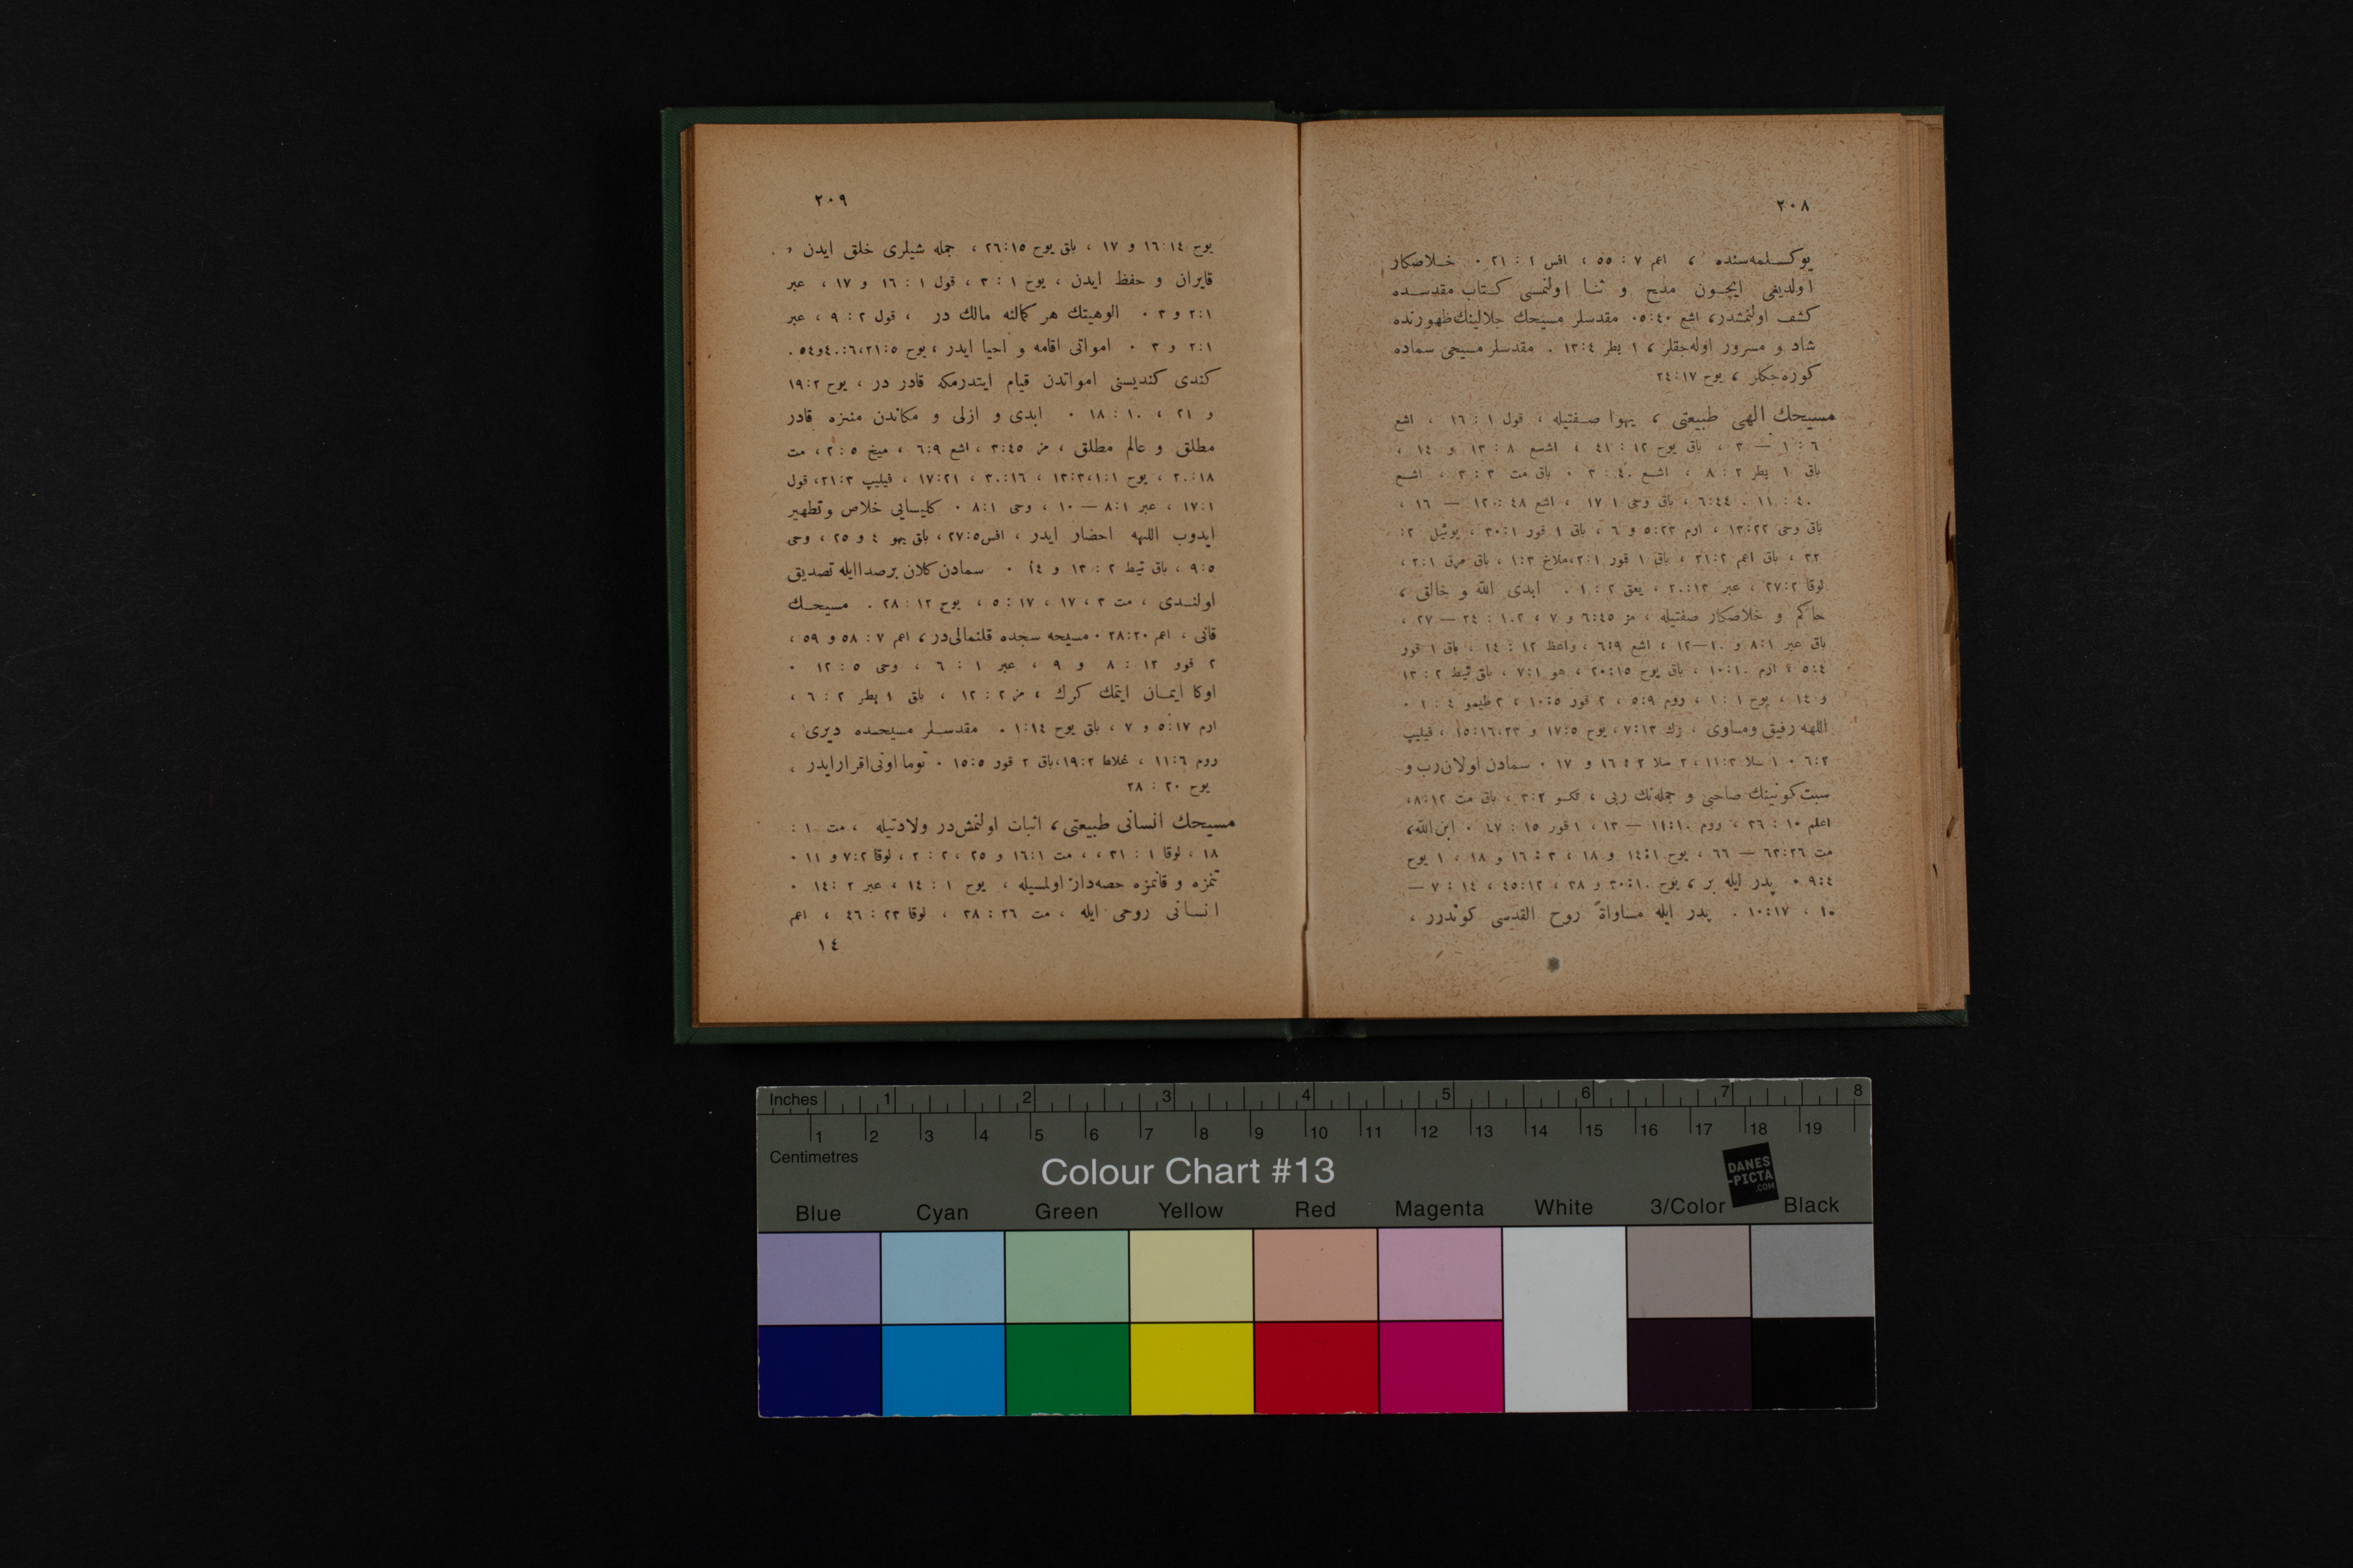 ٢٠٨
يوكسلمه‌سنده ، اعم ٧ : ٥٥ ، افس ١ : ٢١ ٠ خلاصكار
اولديغى ايچون مدح و ثنا اولنمسى كتاب مقدسده
كشف اولنمشدر، اشع ٥:٤٠ ٠ مقدسلر مسيحك جلالينك ظهورنده
شاد و مسرور اوله‌جقلر ، ١ بطر ١٣:٤ ٠ مقدسلر مسيحى سماده
كوره‌جكلر ، يوح ٢٤:١٧
مسيحك الهى طبيعتى ، يهوا صفتيله ، قول ١ : ١٦ ، اشع
٦ : ١ — ٣ ، باق يوح ١٢ : ٤١ ، اشع ٨ : ١٣ و ١٤ ،
باق ١ بطر ٢ : ٨ ، اشع ٤٠ : ٣ ٠ باق مت ٣ : ٣ ، اشع
٤٠ : ١١ ٠ ٦:٤٤ ، باق وحى ١ ١٧ ، اشع ٤٨ : ١٢ — ١٦ ،
باق وحى ١٣:٢٢ ، ارم ٥:٢٣ و ٦ ، باق ١ قور ٣٠:١ ، يوئيل ٢:
٣٢ ، باق اعم ٢١:٢ ، باق ١ قور ٢:١ ،ملاخ ١:٣ ، باق مرق ٢:١ ،
لوقا ٢٧:٢ ، عبر ٢٠:١٣ ، يعق ٢ : ١ ٠ ابدى الله و خالق ،
حاكم و خلاصكار صفتيله ، مز ٦:٤٥ و ٧ ، ١٠٢ : ٢٤ — ٢٧ ،
باق عبر ٨:١ و ١٠—١٢ ، اشع ٦:٩ ، واعظ ١٢ : ١٤ ، باق ١ قور
٥:٤ ، ارم ١٠:١٠ ، باق يوح ٢٠:١٥ ، هو ٧:١ ، باق تيط ٢ : ١٣
و ١٤ ، يوح ١ : ١ ، روم ٥:٩ ، ٢ قور ١٠:٥ ، ٢ طيمو ٤ : ١ ٠
اللهه رفيق ومساوى ، زك ٧:١٣ ، يوح ١٧:٥ و ١٥:١٦،٢٣ ، فيليپ
٦:٢ ٠ ١ سلا ١١:٣ ، ٢ سلا ٢ : ١٦ و ١٧ ٠ سمادن اولان رب و
سبت كونينك صاحبى و جمله‌نك ربى ، تكو ٣:٢ ، باق مت ٨:١٢،
اعلم ١٠ : ٣٦ ، روم ١١:١٠ — ١٣ ، ١ قور ١٥ : ٤٧ ٠ ابن الله ،
مت ٦٣:٢٦ — ٦٦ ، يوح ١٤:١ و ١٨ ، ٣ : ١٦ و ١٨ ، ١ يوح
٩:٤ ٠ پدر ايله بر ، يوح ٣٠:١٠ و ٣٨ ، ٤٥:١٢ ، ١٤ : ٧ —
١٠ ، ١٠:١٧ ٠ پدر ايله مساواةً روح القدسى كوندرر ،
٢٠٩
يوح ١٦:١٤ و ١٧ ، باق يوح ٢٦:١٥ ، جمله شيلرى خلق ايدن ،
قايران و حفظ ايدن ، يوح ١ : ٣ ، قول ١ : ١٦ و ١٧ ، عبر
٢:١ و ٣ ٠ الوهيتك هر كمالنه مالك در ، قول ٢ : ٩ ، عبر
٢:١ و ٣ ٠ امواتى اقامه و احيا ايدر ، يوح ٢١:٥ ،٤٠:٦ و٥٤ ٠
كندى كنديسنى امواتدن قيام ايتدرمكه قادر در ، يوح ١٩:٢
و ٢١ ، ١٠ : ١٨ ٠ ابدى و ازلى و مكاندن منزه قادر
مطلق و عالم مطلق ، مز ٣:٤٥ ، اشع ٦:٩ ، ميخ ٢:٥ ، مت
٢٠:١٨ ، يوح ١:١،١٣:٣ ، ٣٠:١٦ ، ١٧:٢١ ، فيليپ ٢١:٣، قول
١٧:١ ، عبر ٨:١ — ١٠ ، وحى ٨:١ ٠ كليسايى خلاص و تطهير
ايدوب اللهه احضار ايدر ، افس ٢٧:٥ ، باق يهو ٤ و ٢٥ ، وحى
٩:٥ ، باق تيط ٢ : ١٣ و ١٤ ٠ سمادن كلان برصدا ايله تصديق
اولندى ، مت ٣ ، ١٧ ، ١٧ : ٥ ، يوح ١٢ : ٢٨ ٠ مسيحك
قانى ، اعم ٢٨:٢٠ ٠ مسيحه سجده قلنمالى‌در ، اعم ٧ : ٥٨ و ٥٩ ،
٢ قور ١٢ : ٨ و ٩ ، عبر ١ : ٦ ، وحى ٥ : ١٢ ٠
اوكا ايمان ايتمك كرك ، مز ٢ : ١٢ ، باق ١ بطر ٢ : ٦ ،
ارم ٥:١٧ و ٧ ، باق يوح ١:١٤ ٠ مقدسلر مسيحده ديرى ،
روم ١١:٦ ، غلاط ١٩:٢ ،باق ٢ قور ١٥:٥ ٠ توما اونى اقرار ايدر ،
يوح ٢٠ : ٢٨
مسيحك انسانى طبيعتى ، اثبات اولنمش‌در ولادتيله ، مت ١ :
١٨ ، لوقا ١ : ٣١ ، ، مت ١٦:١ و ٢٥ ، ٢ : ٢ ، لوقا ٧:٢ و ١١ ٠
تنمزه و قانمزه حصه‌دار اولمسيله ، يوح ١ : ١٤ ، عبر ٢ : ١٤ ٠
انسانى روحى ايله ، مت ٢٦ : ٣٨ ، لوقا ٢٣ : ٤٦ ، اعم
١٤
Inches 1 2 3 4 5 6 7 8
1 2 3 4 5 6 7 8 9 10 11 12 13 14 15 16 17 18 19
Centimetres
Colour Chart #13
DANES
-PICTA
.COM
Blue Cyan Green Yellow Red Magenta White 3/Color Black